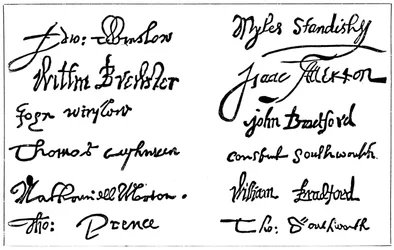 Edw: Winslow
Willm Brewster
John winslow
Thomas cushman
Nathaniell Morton.
Tho: Prence
Myles Standish
Isaac Allerton
john Bradford
constant Southworth.
William Bradford
Tho: Southworth